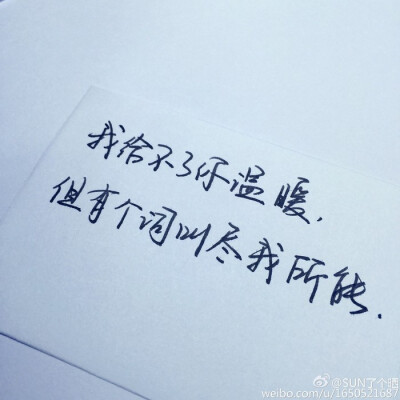 我给不了你温暖.
但有个词叫尽我所能.
@SUN了个晒
weibo.com/u/1650521687